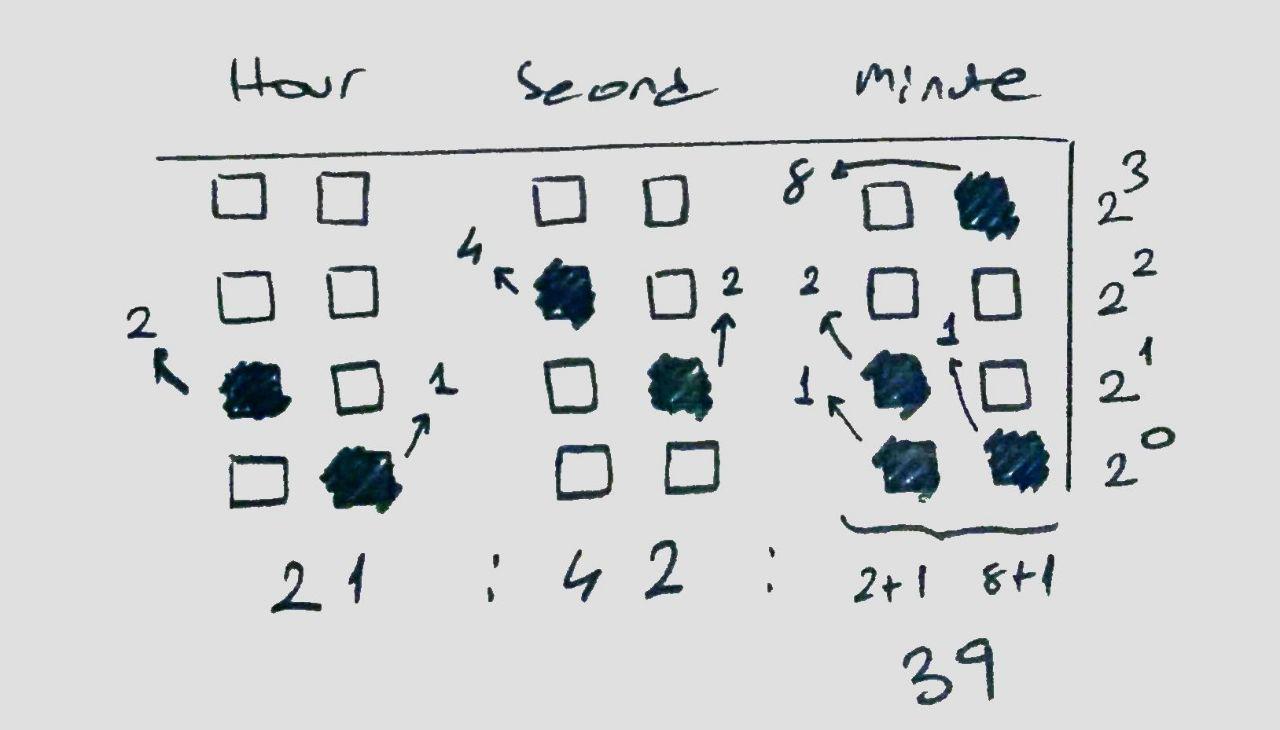 Hour Second Minute
8 2³
4 2 2 2²
2 1 1 1 2¹
2⁰
21 : 42 : 2+1 8+1
39